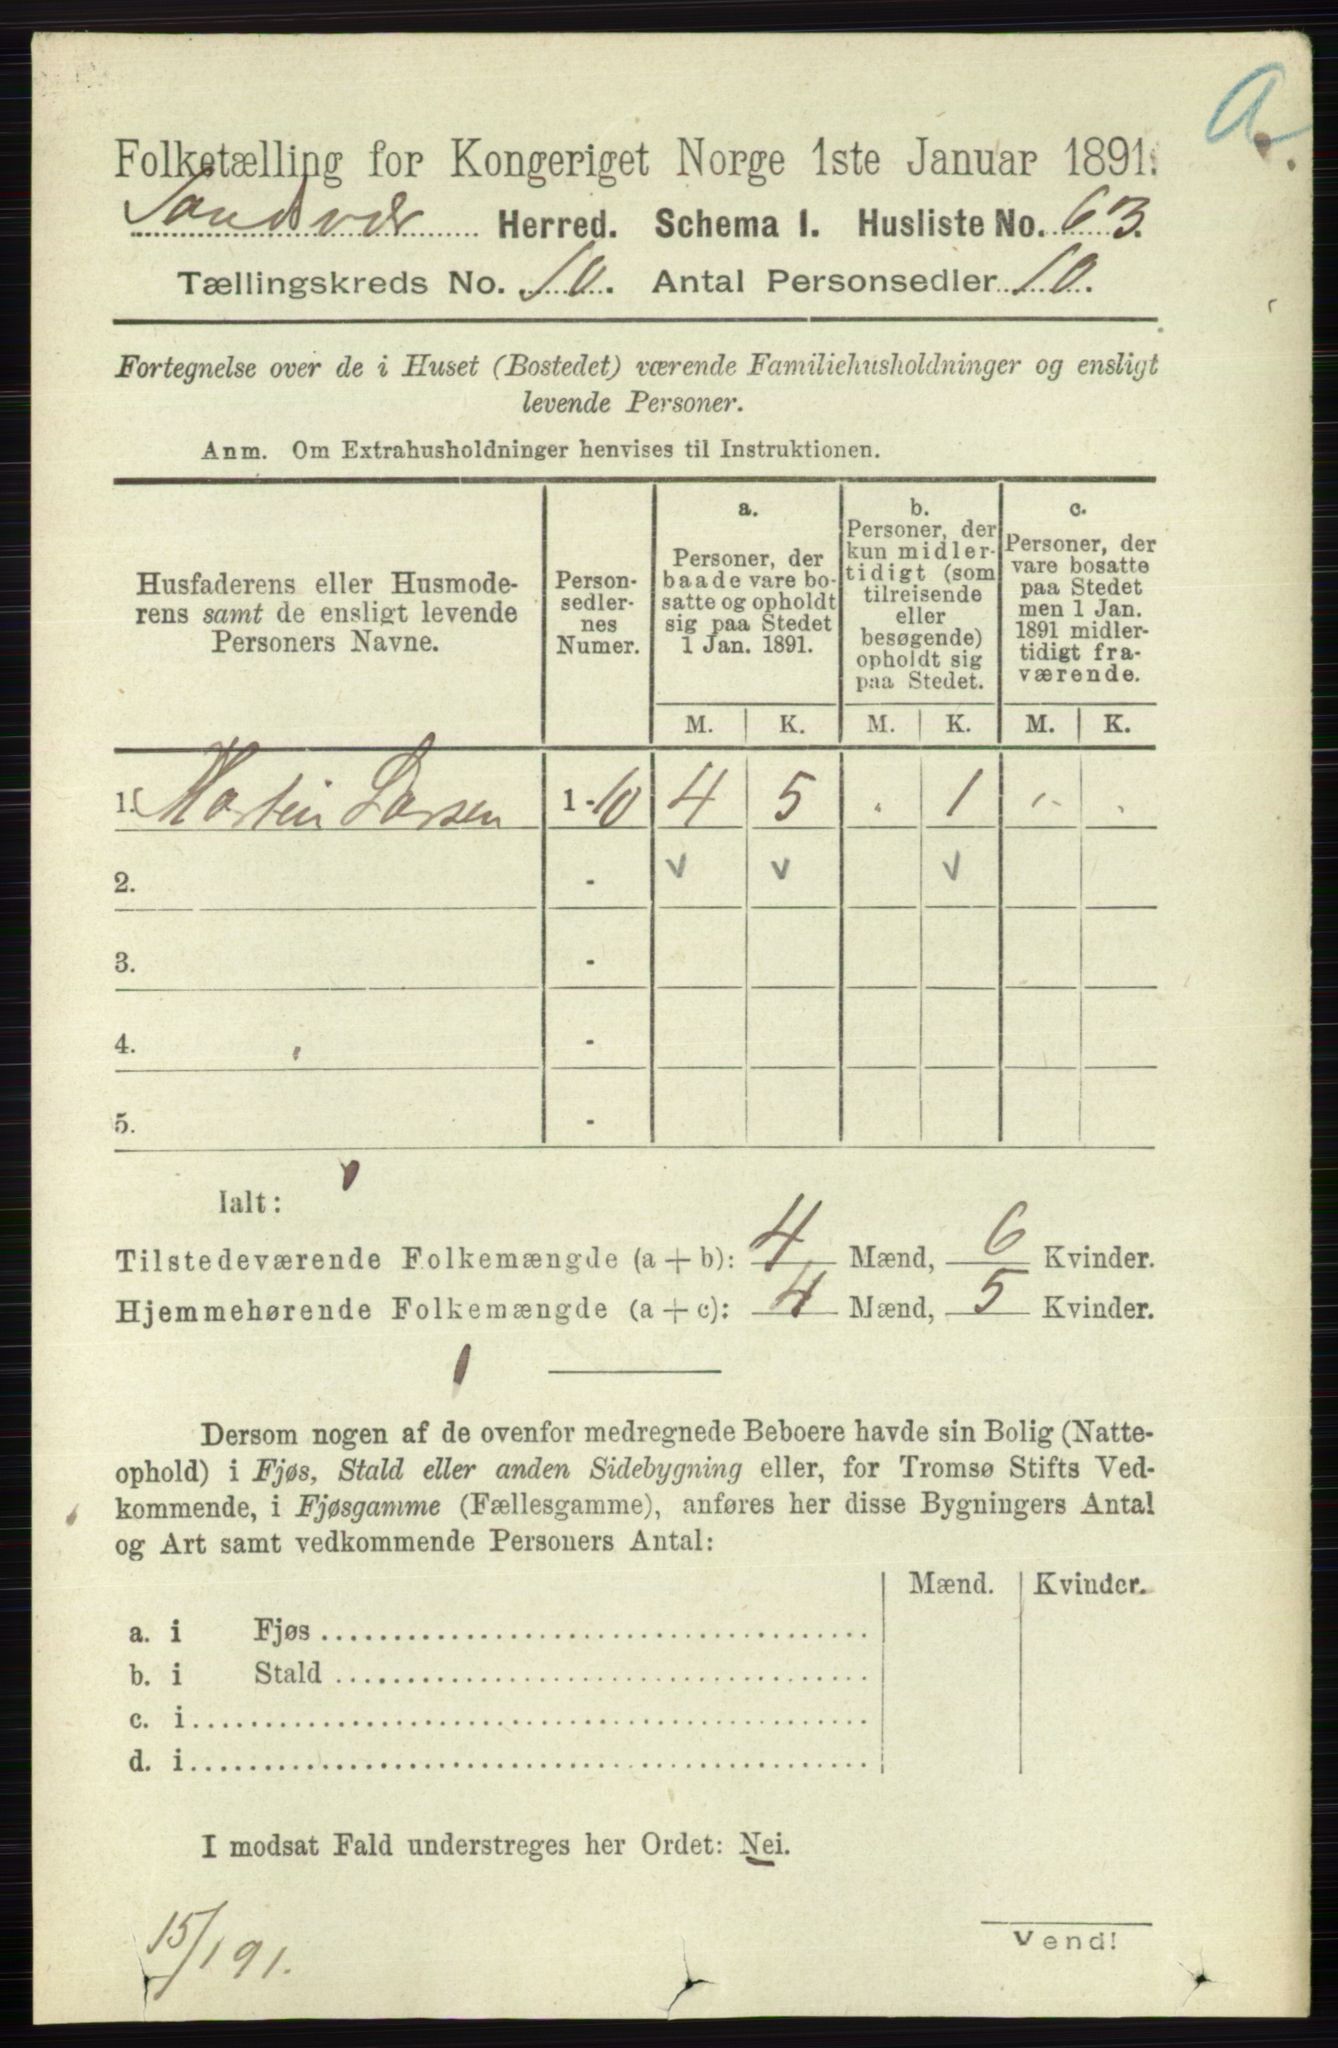 A.
Folketælling for Kongeriget Norge 1ste Januar 1891.
Sandsvær Herred. Schema I. Husliste No. 63.
Tællingskreds No. 10. Antal Personsedler 10.
Fortegnelse over de i Huset (Bostedet) værende Familiehusholdninger og ensligt
levende Personer.
Anm. Om Extrahusholdninger henvises til Instruktionen.
Husfaderens eller Husmode-
rens samt de ensligt levende
Personers Navne.
Person-
sedler-
nes
Numer.
a.
Personer, der
baade vare bo-
satte og opholdt
sig paa Stedet
1 Jan. 1891.
b.
Personer, der
kun midler-
tidigt (som
tilreisende
eller
besøgende)
opholdt sig
paa Stedet.
c.
Personer, der
vare bosatte
paa Stedet
men 1 Jan.
1891 midler-
tidigt fra-
værende.
M. K. M. K. M. K.
1. Martin Larsen 1-10 4 5 . 1 . .
2. - v v v
3. -
4. -
5. -
Ialt:
Tilstedeværende Folkemængde (a + b): 4 Mænd, 6 Kvinder.
Hjemmehørende Folkemængde (a + c): 4 Mænd, 5 Kvinder.
Dersom nogen af de ovenfor medregnede Beboere havde sin Bolig (Natte-
ophold) i Fjøs, Stald eller anden Sidebygning eller, for Tromsø Stifts Ved-
kommende, i Fjøsgamme (Fællesgamme), anføres her disse Bygningers Antal
og Art samt vedkommende Personers Antal:
Mænd. Kvinder.
a. i Fjøs
b. i Stald
c. i
d. i
I modsat Fald understreges her Ordet: Nei.
15/1 91.
Vend!